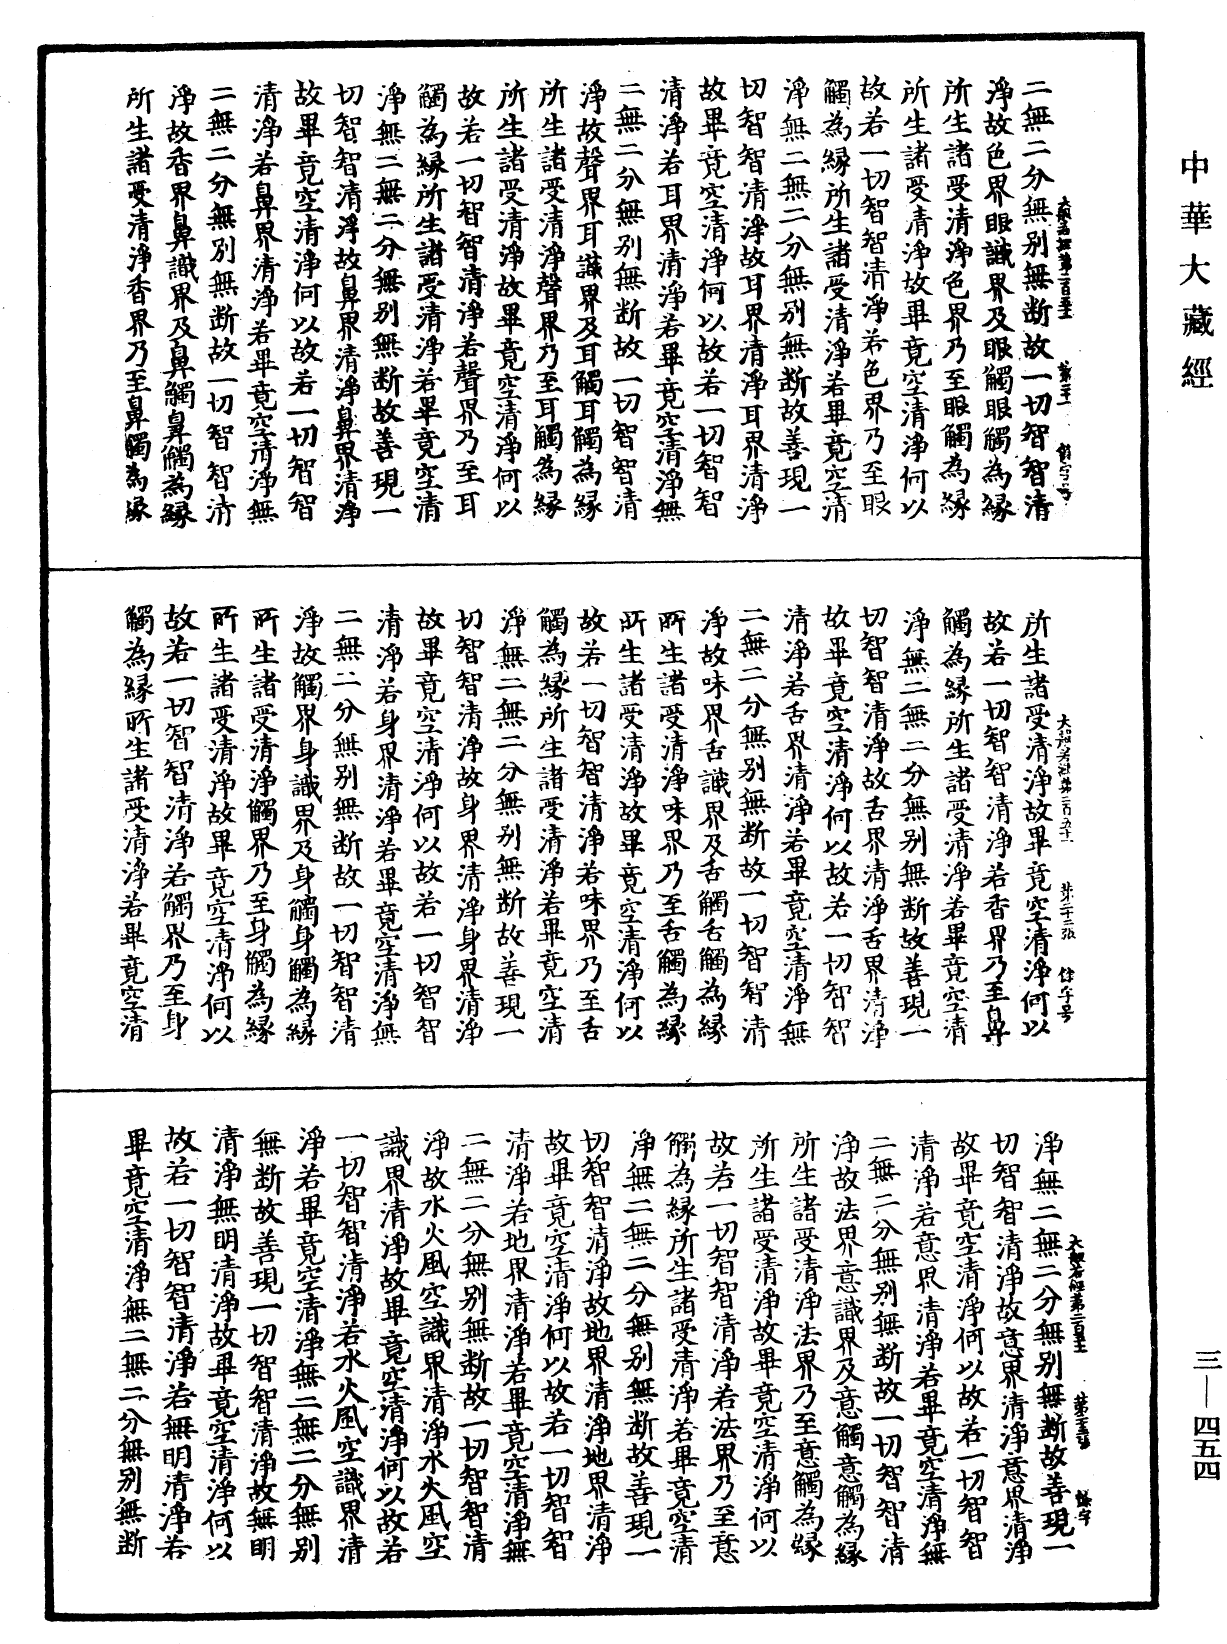 中華大藏經
二無二分無别無断故一切智智清
淨故色界眼識界及眼觸眼觸為緣
所生諸受清淨色界乃至眼觸為緣
所生諸受清淨故畢竟空清淨何以
故若一切智智清淨若色界乃至眼
觸為緣所生諸受清淨若畢竟空清
淨無二無二分無别無断故善現一
切智智清淨故耳界清淨耳界清淨
故畢竟空清淨何以故若一切智智
清淨若耳界清淨若畢竟空清淨無
二無二分無别無断故一切智智清
淨故聲界耳識界及耳觸耳觸為緣
所生諸受清淨聲界乃至耳觸為緣
所生諸受清淨故畢竟空清淨何以
故若一切智智清淨若聲界乃至耳
觸為緣所生諸受清淨若畢竟空清
淨無二無二分無别無断故善現一
切智智清淨故鼻界清淨鼻界清淨
故畢竟空清淨何以故若一切智智
清淨若鼻界清淨若畢竟空清淨無
二無二分無别無断故一切智智清
淨故香界鼻識界及鼻觸鼻觸為緣
所生諸受清淨香界乃至鼻觸為緣
大般若經第二百五十一 第二十二張 𠋫字号
所生諸受清淨故畢竟空清淨何以
故若一切智智清淨若香界乃至鼻
觸為緣所生諸受清淨若畢竟空清
淨無二無二分無别無断故善現一
切智智清淨故舌界清淨舌界清淨
故畢竟空清淨何以故若一切智智
清淨若舌界清淨若畢竟空清淨無
二無二分無别無断故一切智智清
淨故味界舌識界及舌觸舌觸為緣
所生諸受清淨味界乃至舌觸為緣
所生諸受清淨故畢竟空清淨何以
故若一切智智清淨若味界乃至舌
觸為緣所生諸受清淨若畢竟空清
淨無二無二分無别無断故善現一
切智智清淨故身界清淨身界清淨
故畢竟空清淨何以故若一切智智
清淨若身界清淨若畢竟空清淨無
二無二分無别無断故一切智智清
淨故觸界身識界及身觸身觸為緣
所生諸受清淨觸界乃至身觸為緣
所生諸受清淨故畢竟空清淨何以
故若一切智智清淨若觸界乃至身
觸為緣所生諸受清淨若畢竟空清
淨無二無二分無别無断故善現一
切智智清淨故意界清淨意界清淨
故畢竟空清淨何以故若一切智智
清淨若意界清淨若畢竟空清淨無
二無二分無别無断故一切智智清
淨故法界意識界及意觸意觸為緣
所生諸受清淨法界乃至意觸為緣
所生諸受清淨故畢竟空清淨何以
故若一切智智清淨若法界乃至意
觸為緣所生諸受清淨若畢竟空清
淨無二無二分無别無断故善現一
切智智清淨故地界清淨地界清淨
故畢竟空清淨何以故若一切智智
清淨若地界清淨若畢竟空清淨無
二無二分無别無断故一切智智清
淨故水火風空識界清淨水火風空
識界清淨故畢竟空清淨何以故若
一切智智清淨若水火風空識界清
淨若畢竟空清淨無二無二分無别
無断故善現一切智智清淨故無明
清淨無明清淨故畢竟空清淨何以
故若一切智智清淨若無明清淨若
畢竟空清淨無二無二分無别無断
三—四五四